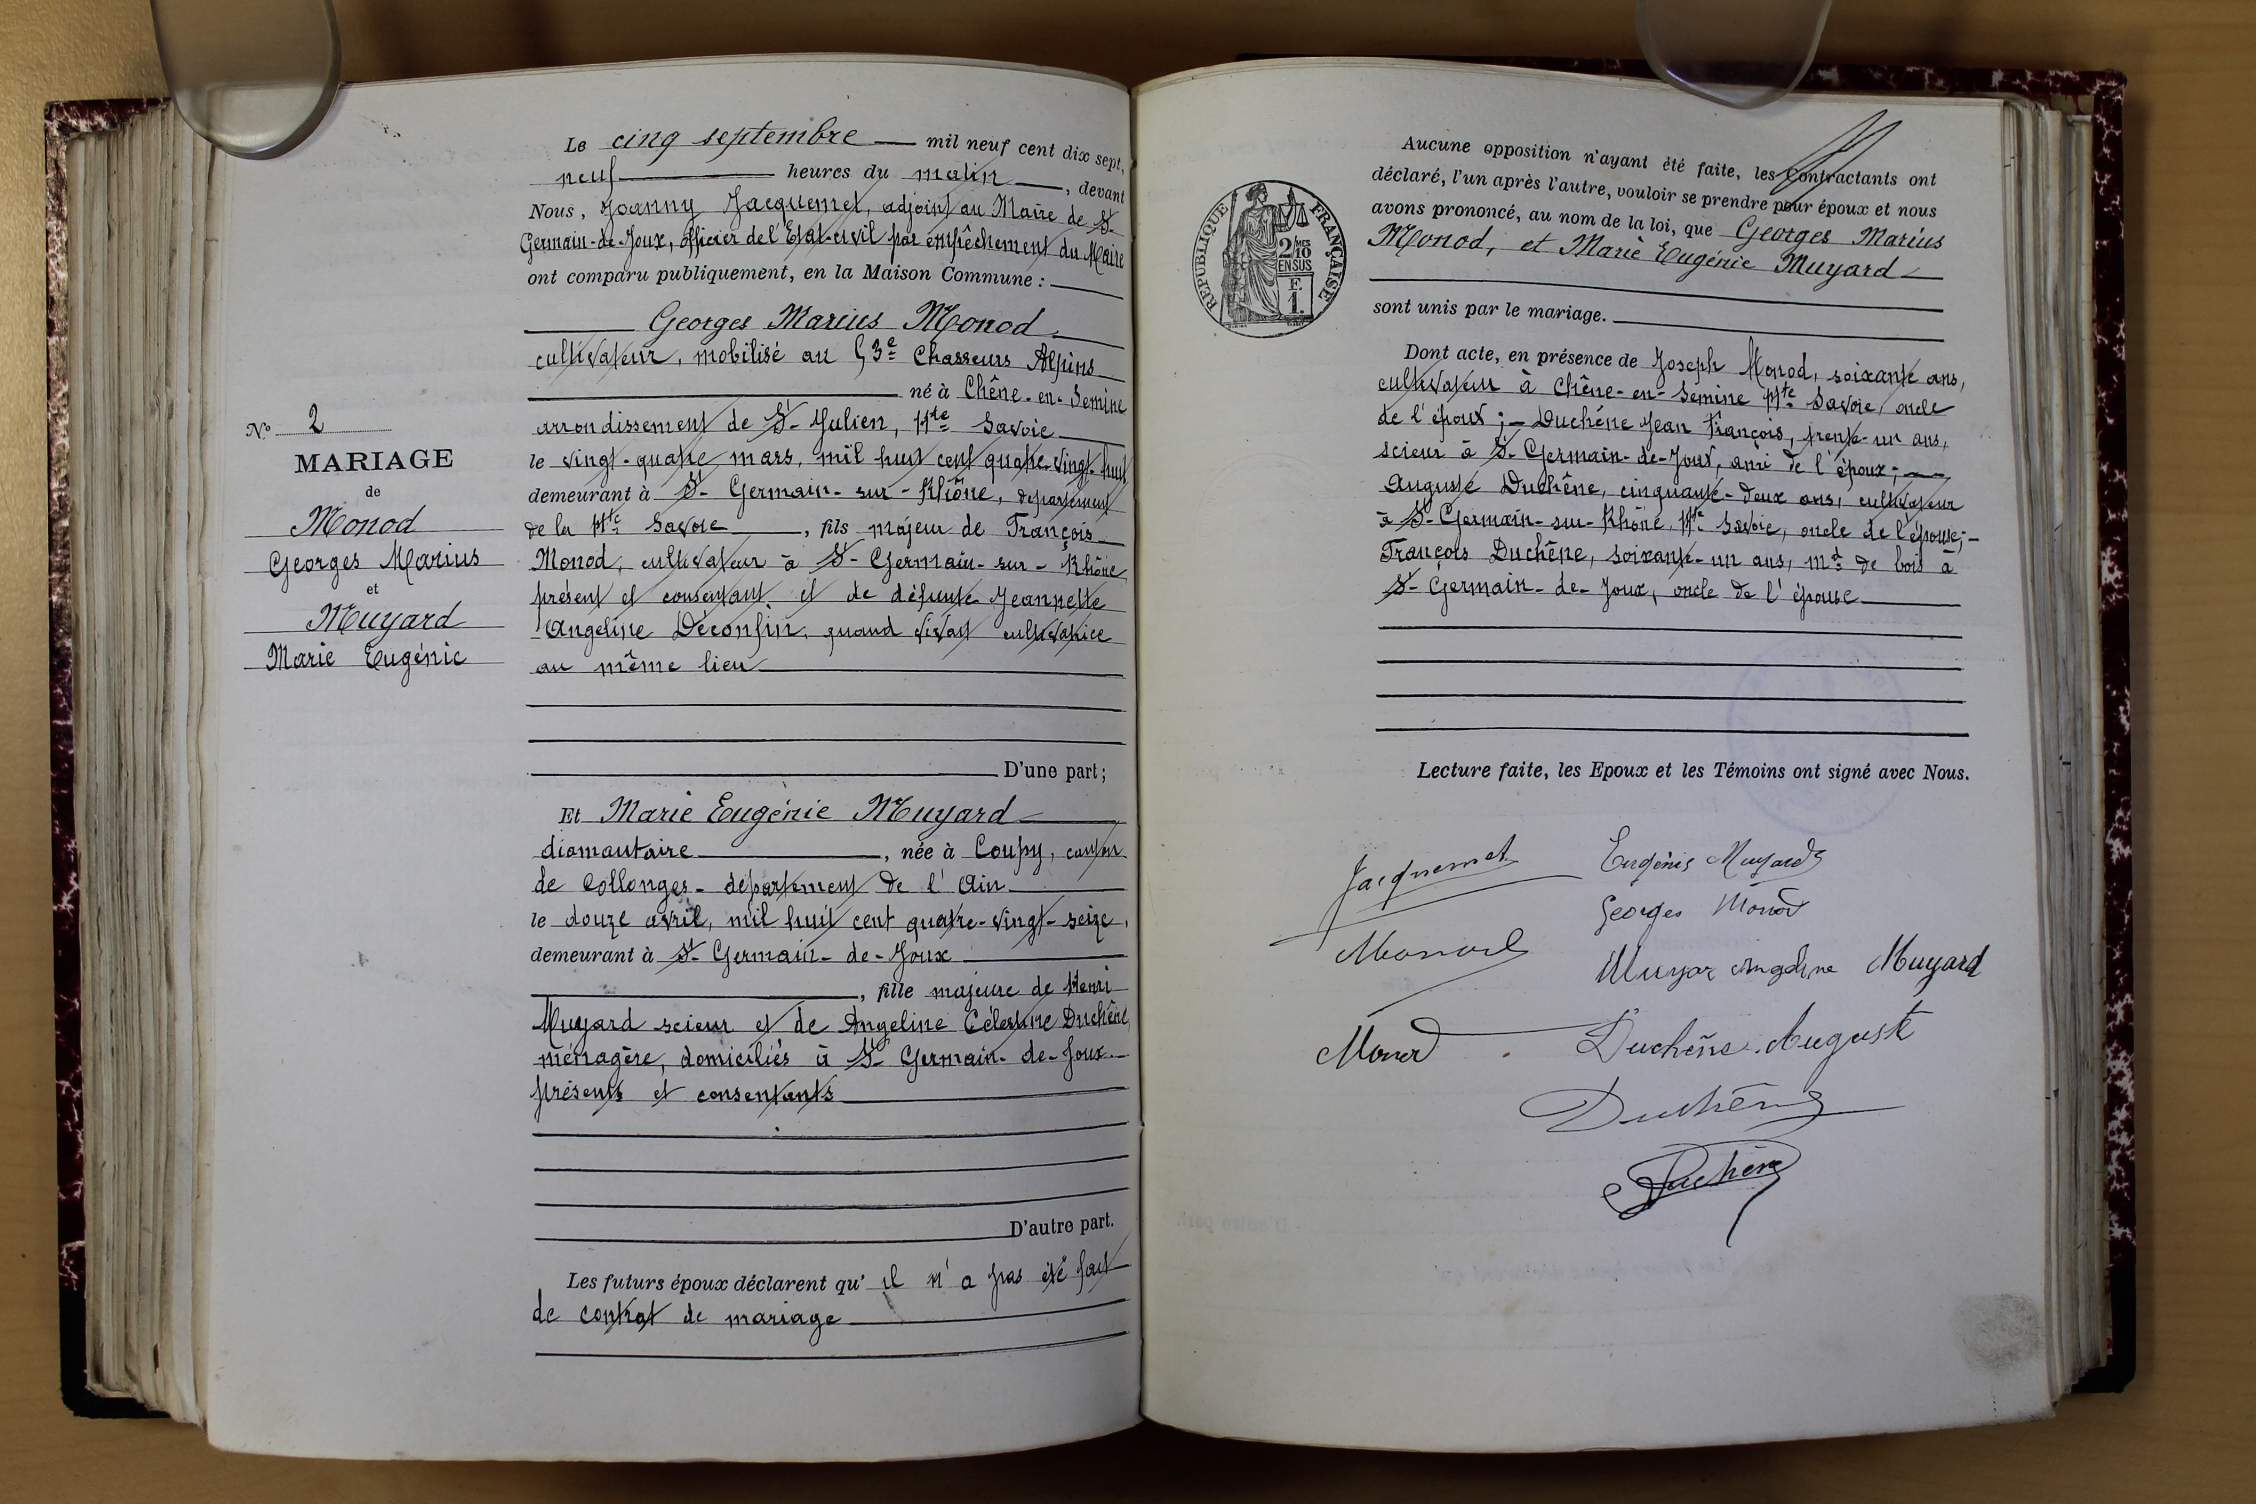 Le cinq septembre — mil neuf cent dix sept,
neuf — heures du matin —, devant
Nous, Joanny Jacquemet, adjoint au Maire de St-
Germain-de-Joux, officier de l'Etat-civil par empêchement du Maire
ont comparu publiquement, en la Maison Commune :
Georges Marius Monod
cultivateur, mobilisé au 53e Chasseurs Alpins
né à Chêne-en-Semine
arrondissement de St-Julien, Hte Savoie
le vingt-quatre mars, mil huit cent quatre-vingt-huit
demeurant à St-Germain-sur-Rhône, département
de la Hte Savoie —, fils majeur de François
Monod, cultivateur à St-Germain-sur-Rhône
présent et consentant et de défunte Jeannette
Angeline Déconfin, quand vivait cultivatrice
au même lieu
D'une part ;
No 2
MARIAGE
de
Monod
Georges Marius
et
Muyard
Marie Eugénie
Et Marie Eugénie Muyard
diamantaire —, née à Coupy, canton
de Collonges - département de l'Ain
le douze avril, mil huit cent quatre-vingt-seize,
demeurant à St-Germain-de-Joux
, fille majeure de Henri
Muyard scieur et de Angeline Célestine Duchêne
ménagère, domiciliés à St Germain-de-Joux
présents et consentants
D'autre part.
Les futurs époux déclarent qu'il n'a pas été fait
de contrat de mariage
REPUBLIQUE FRANÇAISE
2/10 MES
EN SUS
F.
1.
Aucune opposition n'ayant été faite, les Contractants ont
déclaré, l'un après l'autre, vouloir se prendre pour époux et nous
avons prononcé, au nom de la loi, que Georges Marius
Monod, et Marie Eugénie Muyard
sont unis par le mariage.
Dont acte, en présence de Joseph Monod, soixante ans,
cultivateur à Chêne-en-Semine Hte Savoie, oncle
de l'époux ; - Duchêne Jean François, trente-un ans,
scieur à St-Germain-de-Joux, ami de l'époux ; -
Auguste Duchêne, cinquante-deux ans, cultivateur
à St-Germain-sur-Rhône, Hte Savoie, oncle de l'épouse ; -
François Duchêne, soixante-un ans, md de bois à
St-Germain-de-Joux, oncle de l'épouse
Lecture faite, les Epoux et les Témoins ont signé avec Nous.
Jacquemet
Eugénie Muyard
Georges Monod
Monod
Muyard
Monod
Duchêne Auguste
Duchêne
Duchêne